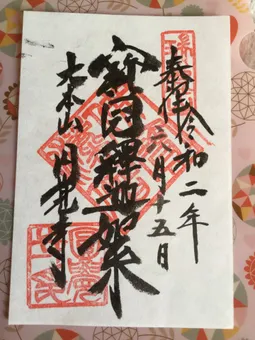 奉拝 令和二年
六月十五日
寳冠釋迦如来
大本山 円覚寺